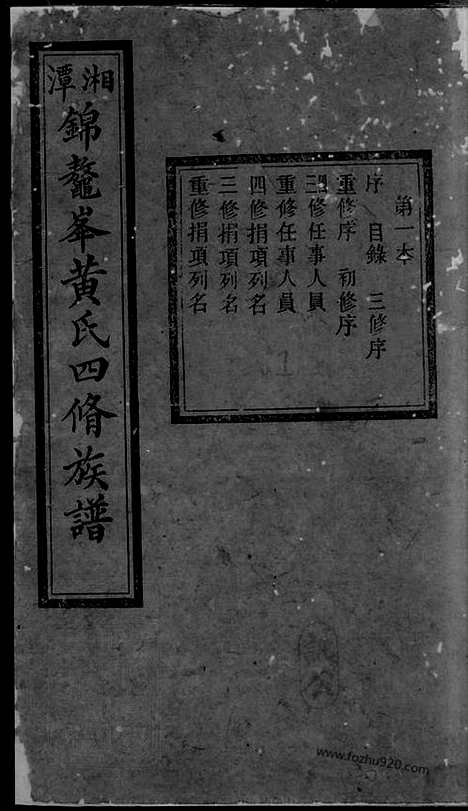 湘潭
錦鼇峯黃氏四脩族譜
第一本
序 目錄 三修序
重修序 初修序
修任事人員
重修任事人員
四修捐項列名
三修捐項列名
重修捐項列名
www.fozhu920.com